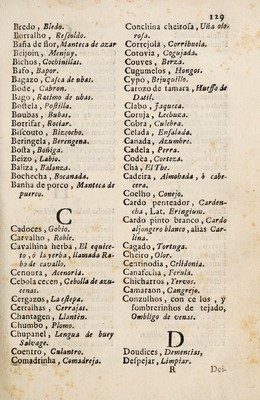 129
Bredo, Bledo.
Borralho, Resoldo.
Baña de flor, Manteca de azar
Beijoin, Menjuy.
Bichos, Cochinillas.
Bafo, Bapor.
Bagazo, Casca de ubas.
Bode, Cabron.
Bago, Razimo de ubas.
Bostela, Postilla.
Boubas, Bubas.
Borrifar, Rociar.
Biscouto, Bizcocho.
Beringela, Berengena.
Bosta, Boñiga.
Beizo, Labio.
Baliza, Balanza.
Bochecha, Bocanada.
Banha de porco, Manteca de
puerco.
C
Cadoces, Gobio.
Carvalho, Roble.
Cavalhina herba, El equice-
to, ò la yerba, llamada Ra-
bo de cavallo.
Cenoura, Acenoria.
Cebola cecen, Cebolla de azu-
cenas.
Cergazos, La estepa.
Cerralhas, Cerrajas.
Chantagen, Llantèn.
Chumbo, Plomo.
Chupanel, Lengua de buey
Salvage.
Coentro, Culantro.
Comadrinha, Comadreja.
Conchina cheirosa, Uña olo-
rosa.
Correjola, Corrihuela.
Cotovia, Cogujada.
Couves, Berza.
Cugumelos, Hongos.
Cypo, Bejuquillo.
Carozo de tamara, Huesso de
Datil.
Clabo, Jaqueca.
Coruja, Lechuza.
Cobra, Culebra.
Celada, Ensalada.
Canada, Azumbre.
Cadela, Perra.
Codea, Corteza.
Chà, El The.
Cadeira, Almohada, ò cabe-
cera.
Coelho, Conejo.
Cardo penteador, Carden-
cha, Lat. Eringium.
Cardo pinto branco, Cardo
aljongero blanco, alias Car-
lina.
Cagado, Tortuga.
Cheiro, Olor.
Centinodia, Celidonia.
Canafecha, Ferula.
Chicharros, Yervos.
Camaraon, Cangrejo.
Conzulhos, con ce los, y
sombrerinhos de tejado,
Ombligo de venas.
D
Doudices, Demencias,
Despejar, Limpiar.
R Dei-